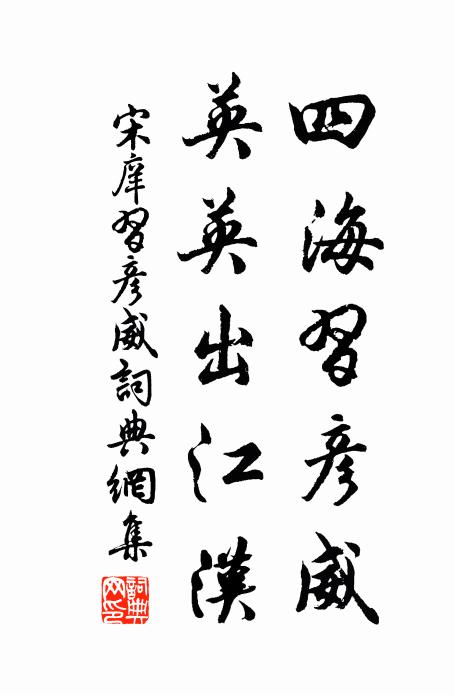 四海習彥威
英英出江漢
宋庠習彥威詞典網集
詞典網印